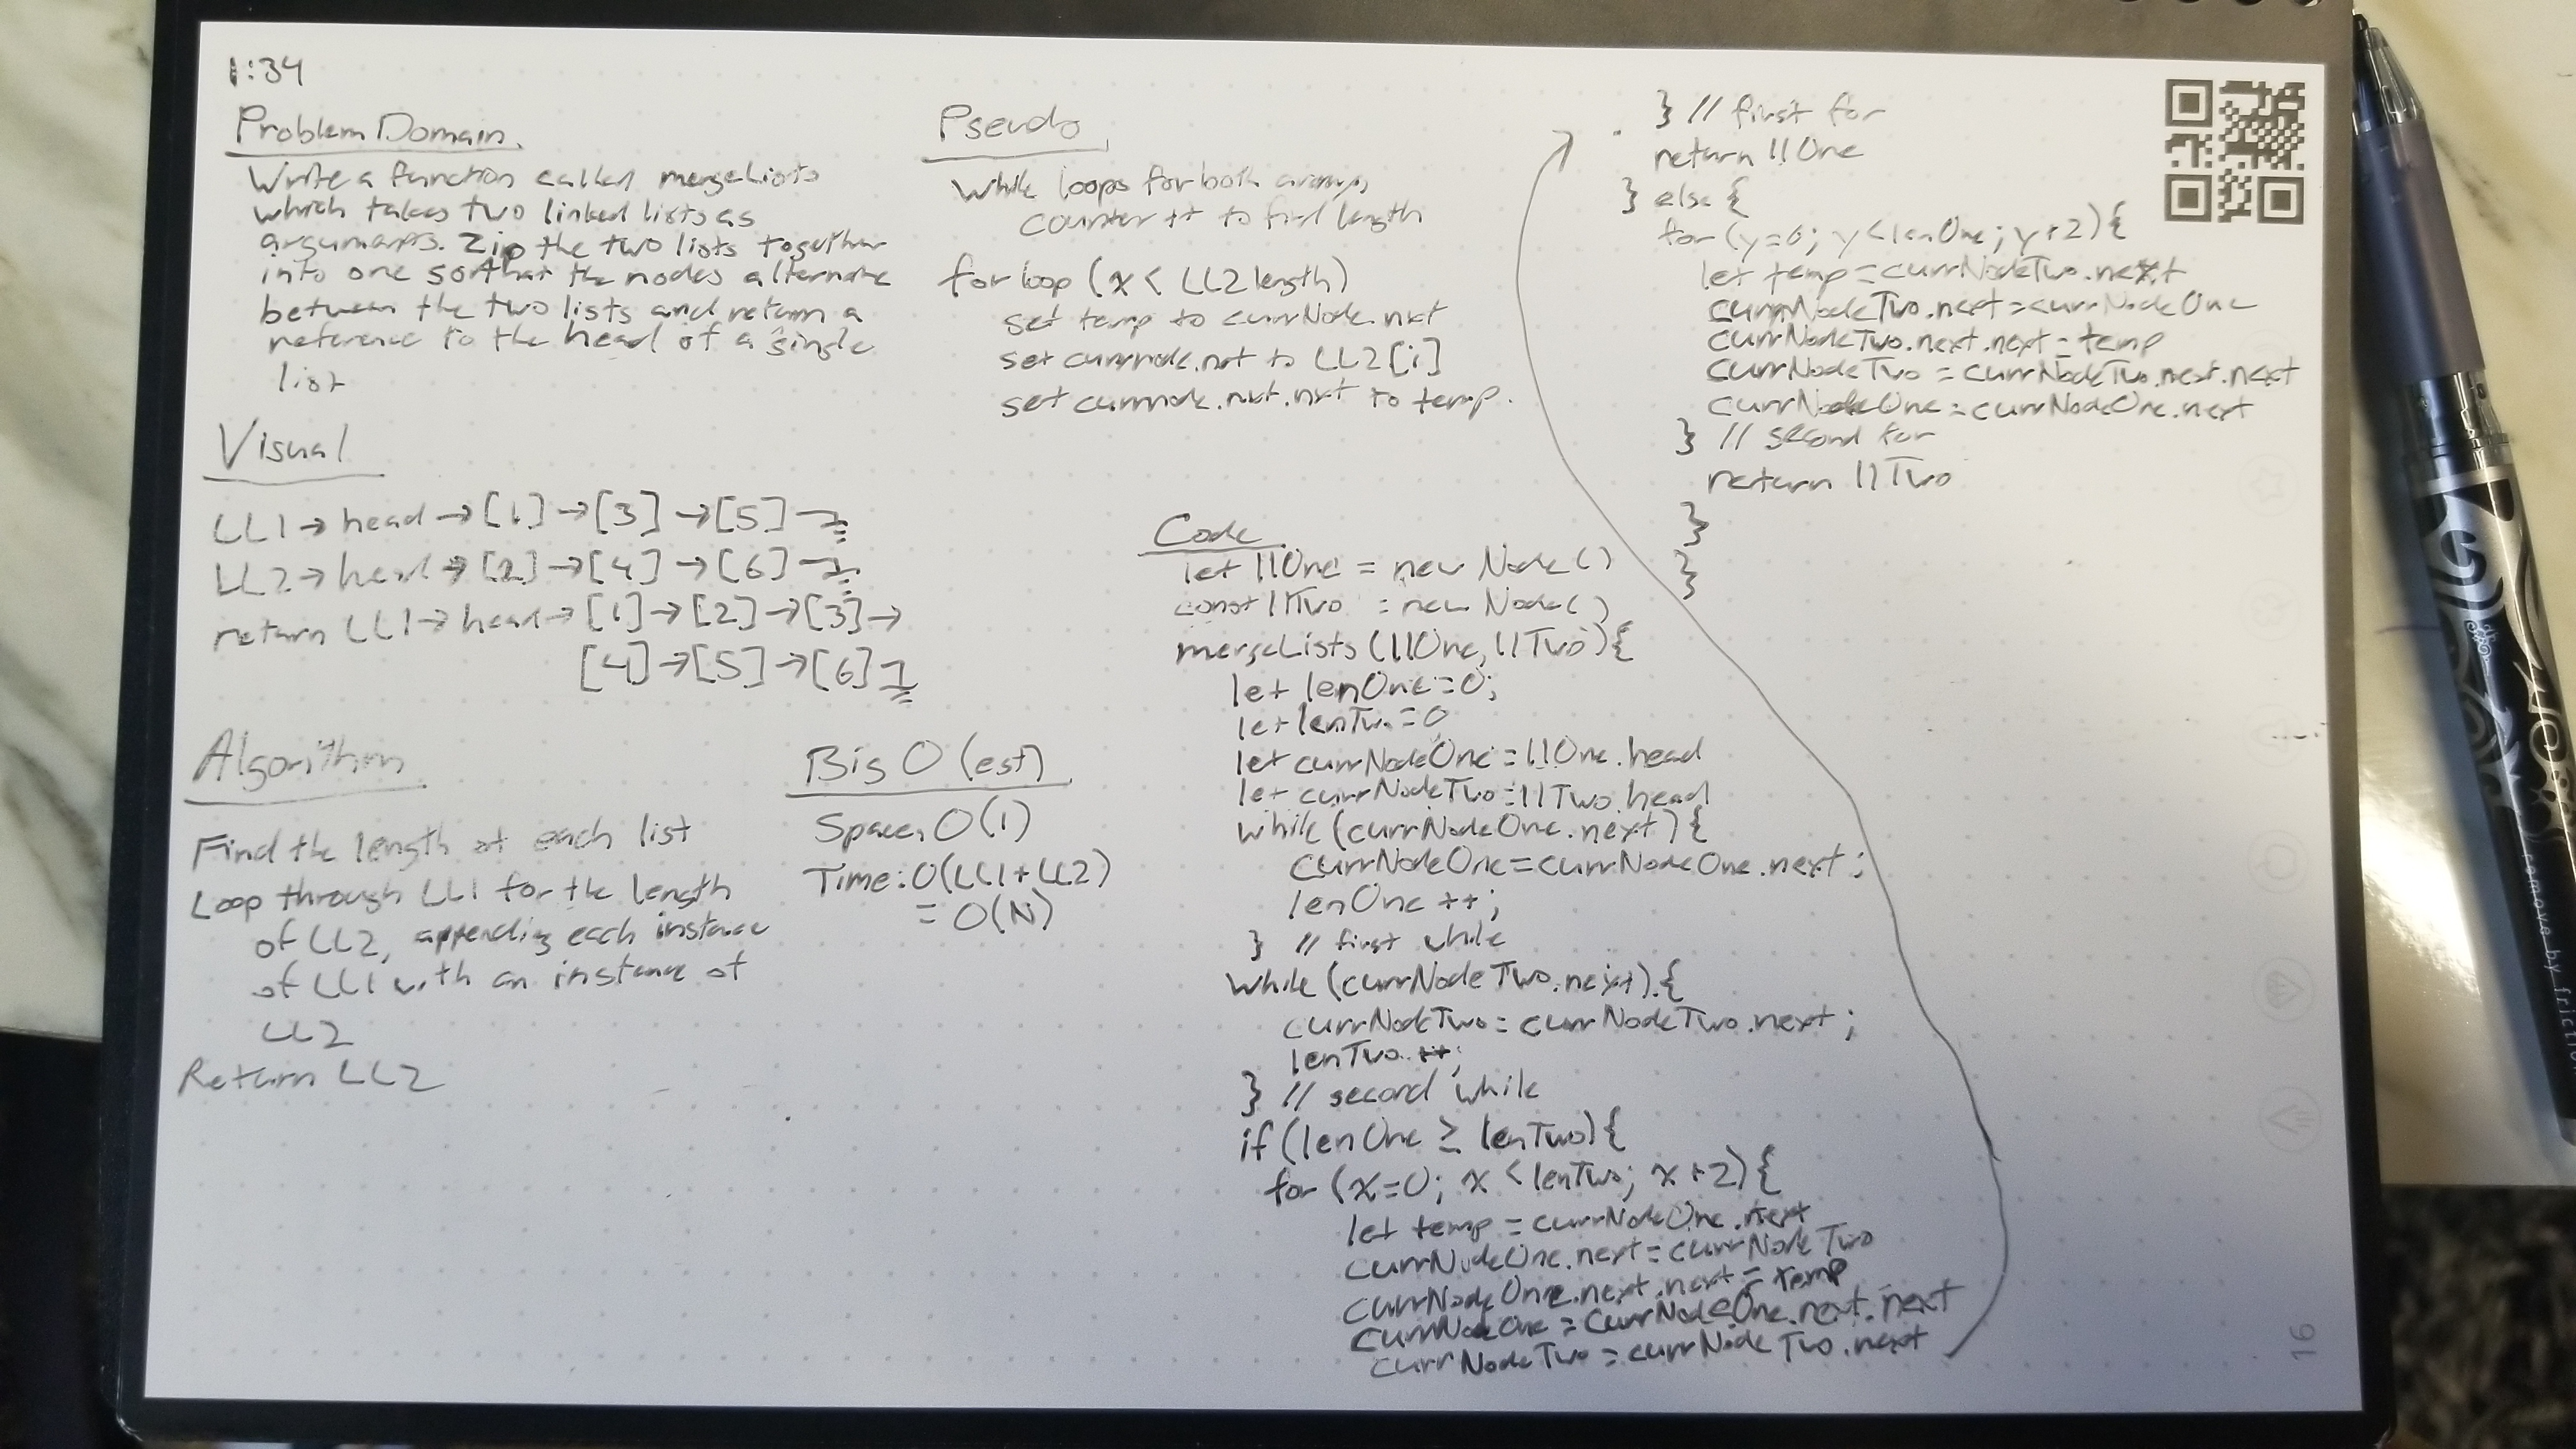 1:34
Problem Domain
Write a function called mergeLists
which takes two linked lists as
arguments. Zip the two lists together
into one so that the nodes alternate
between the two lists and return a
reference to the head of a single
list
Visual
LL1 → head → [1] → [3] → [5] →
LL2 → head → [2] → [4] → [6] →
return LL1 → head → [1] → [2] → [3] →
[4] → [5] → [6]
Algorithm
Find the length of each list
Loop through LL1 for the length
of LL2, appending each instance
of LL1 with an instance of
LL2
Return LL2
Big O (est)
Space: O(1)
Time: O(LL1 + LL2)
= O(N)
Pseudo
While loops for both arrays,
counter ++ to find length
for loop (x < LL2 length)
set temp to currNode.nxt
set currnode.nxt to LL2[i]
set currnode.nxt.nxt to temp.
Code
let llOne = new Node()
const llTwo = new Node()
mergeLists (llOne, llTwo){
let lenOne = 0;
let lenTwo = 0
let currNodeOne = llOne.head
let currNodeTwo = llTwo.head
while (currNodeOne.next){
currNodeOne = currNodeOne.next;
lenOne ++;
} // first while
while (currNodeTwo.next).{
currNodeTwo = currNodeTwo.next;
lenTwo ++;
} // second while
if (lenOne ≥ lenTwo){
for (x=0; x < lenTwo; x+2){
let temp = currNodeOne.next
currNodeOne.next = currNodeTwo
currNodeOne.next.next = temp
currNodeOne = currNodeOne.next.next
currNodeTwo = currNodeTwo.next
} // first for
return llOne
} else {
for (y=0; y < lenOne; y+2){
let temp = currNodeTwo.next
currNodeTwo.next = currNodeOne
currNodeTwo.next.next = temp
currNodeTwo = currNodeTwo.next.next
currNodeOne = currNodeOne.next
} // second for
return llTwo
}
}
16